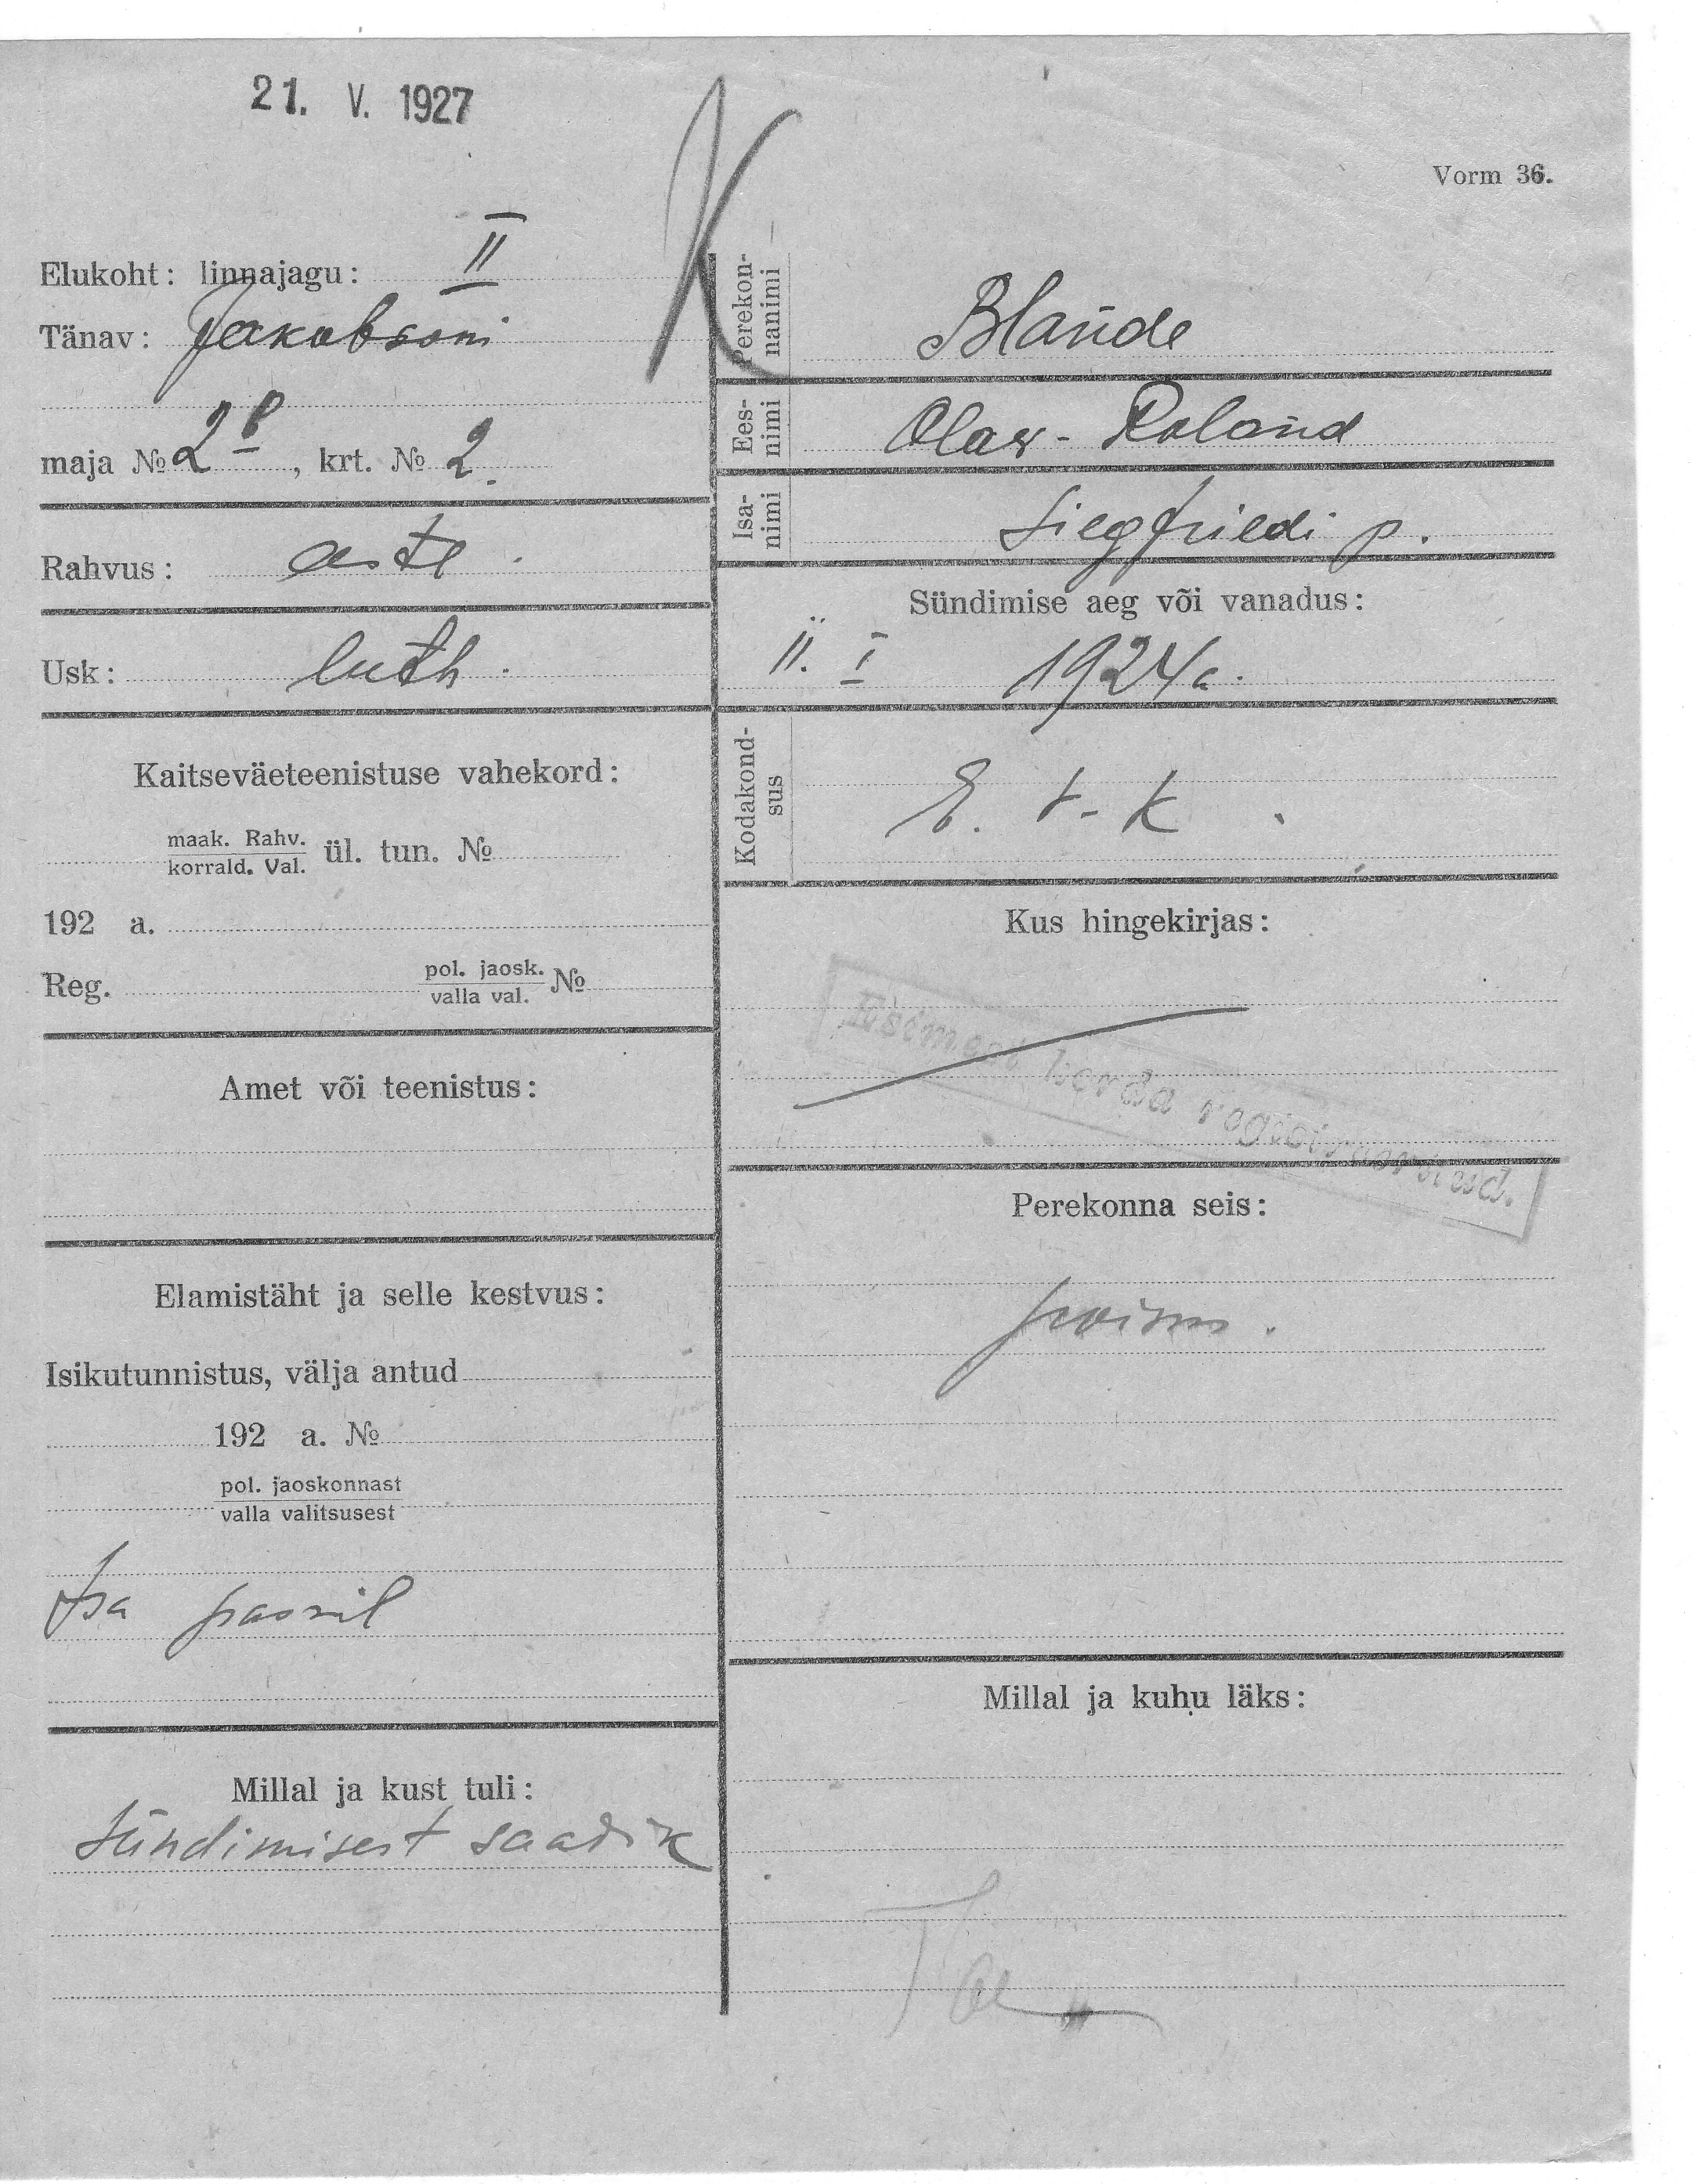 21. V. 1927
Vorm 36.
Elukoht: linnajagu: II
Tänav: Jakobsoni
maja № 28, krt. № 2.
Rahvus: eestl.
Usk: luth.
Kaitseväeteenistuse vahekord:
maak. Rahv.
korrald. Val. ül. tun. №
192 a.
Reg. pol. jaosk.
valla val. №
Amet või teenistus:
Elamistäht ja selle kestvus:
Isikutunnistus, välja antud
192 a. №
pol. jaoskonnast
valla valitsusest
Isa passil
Millal ja kust tuli:
Sündimisest saadik
Perekon-
nanimi
Blande
Ees-
nimi
Olav-Roland
Isa-
nimi
Siegfriedi p.
Sündimise aeg või vanadus:
11. I 1924 a.
Kodakond-
sus
E. v. k.
Kus hingekirjas:
Esimest korda registreeritud.
Perekonna seis:
poiss.
Millal ja kuhu läks: